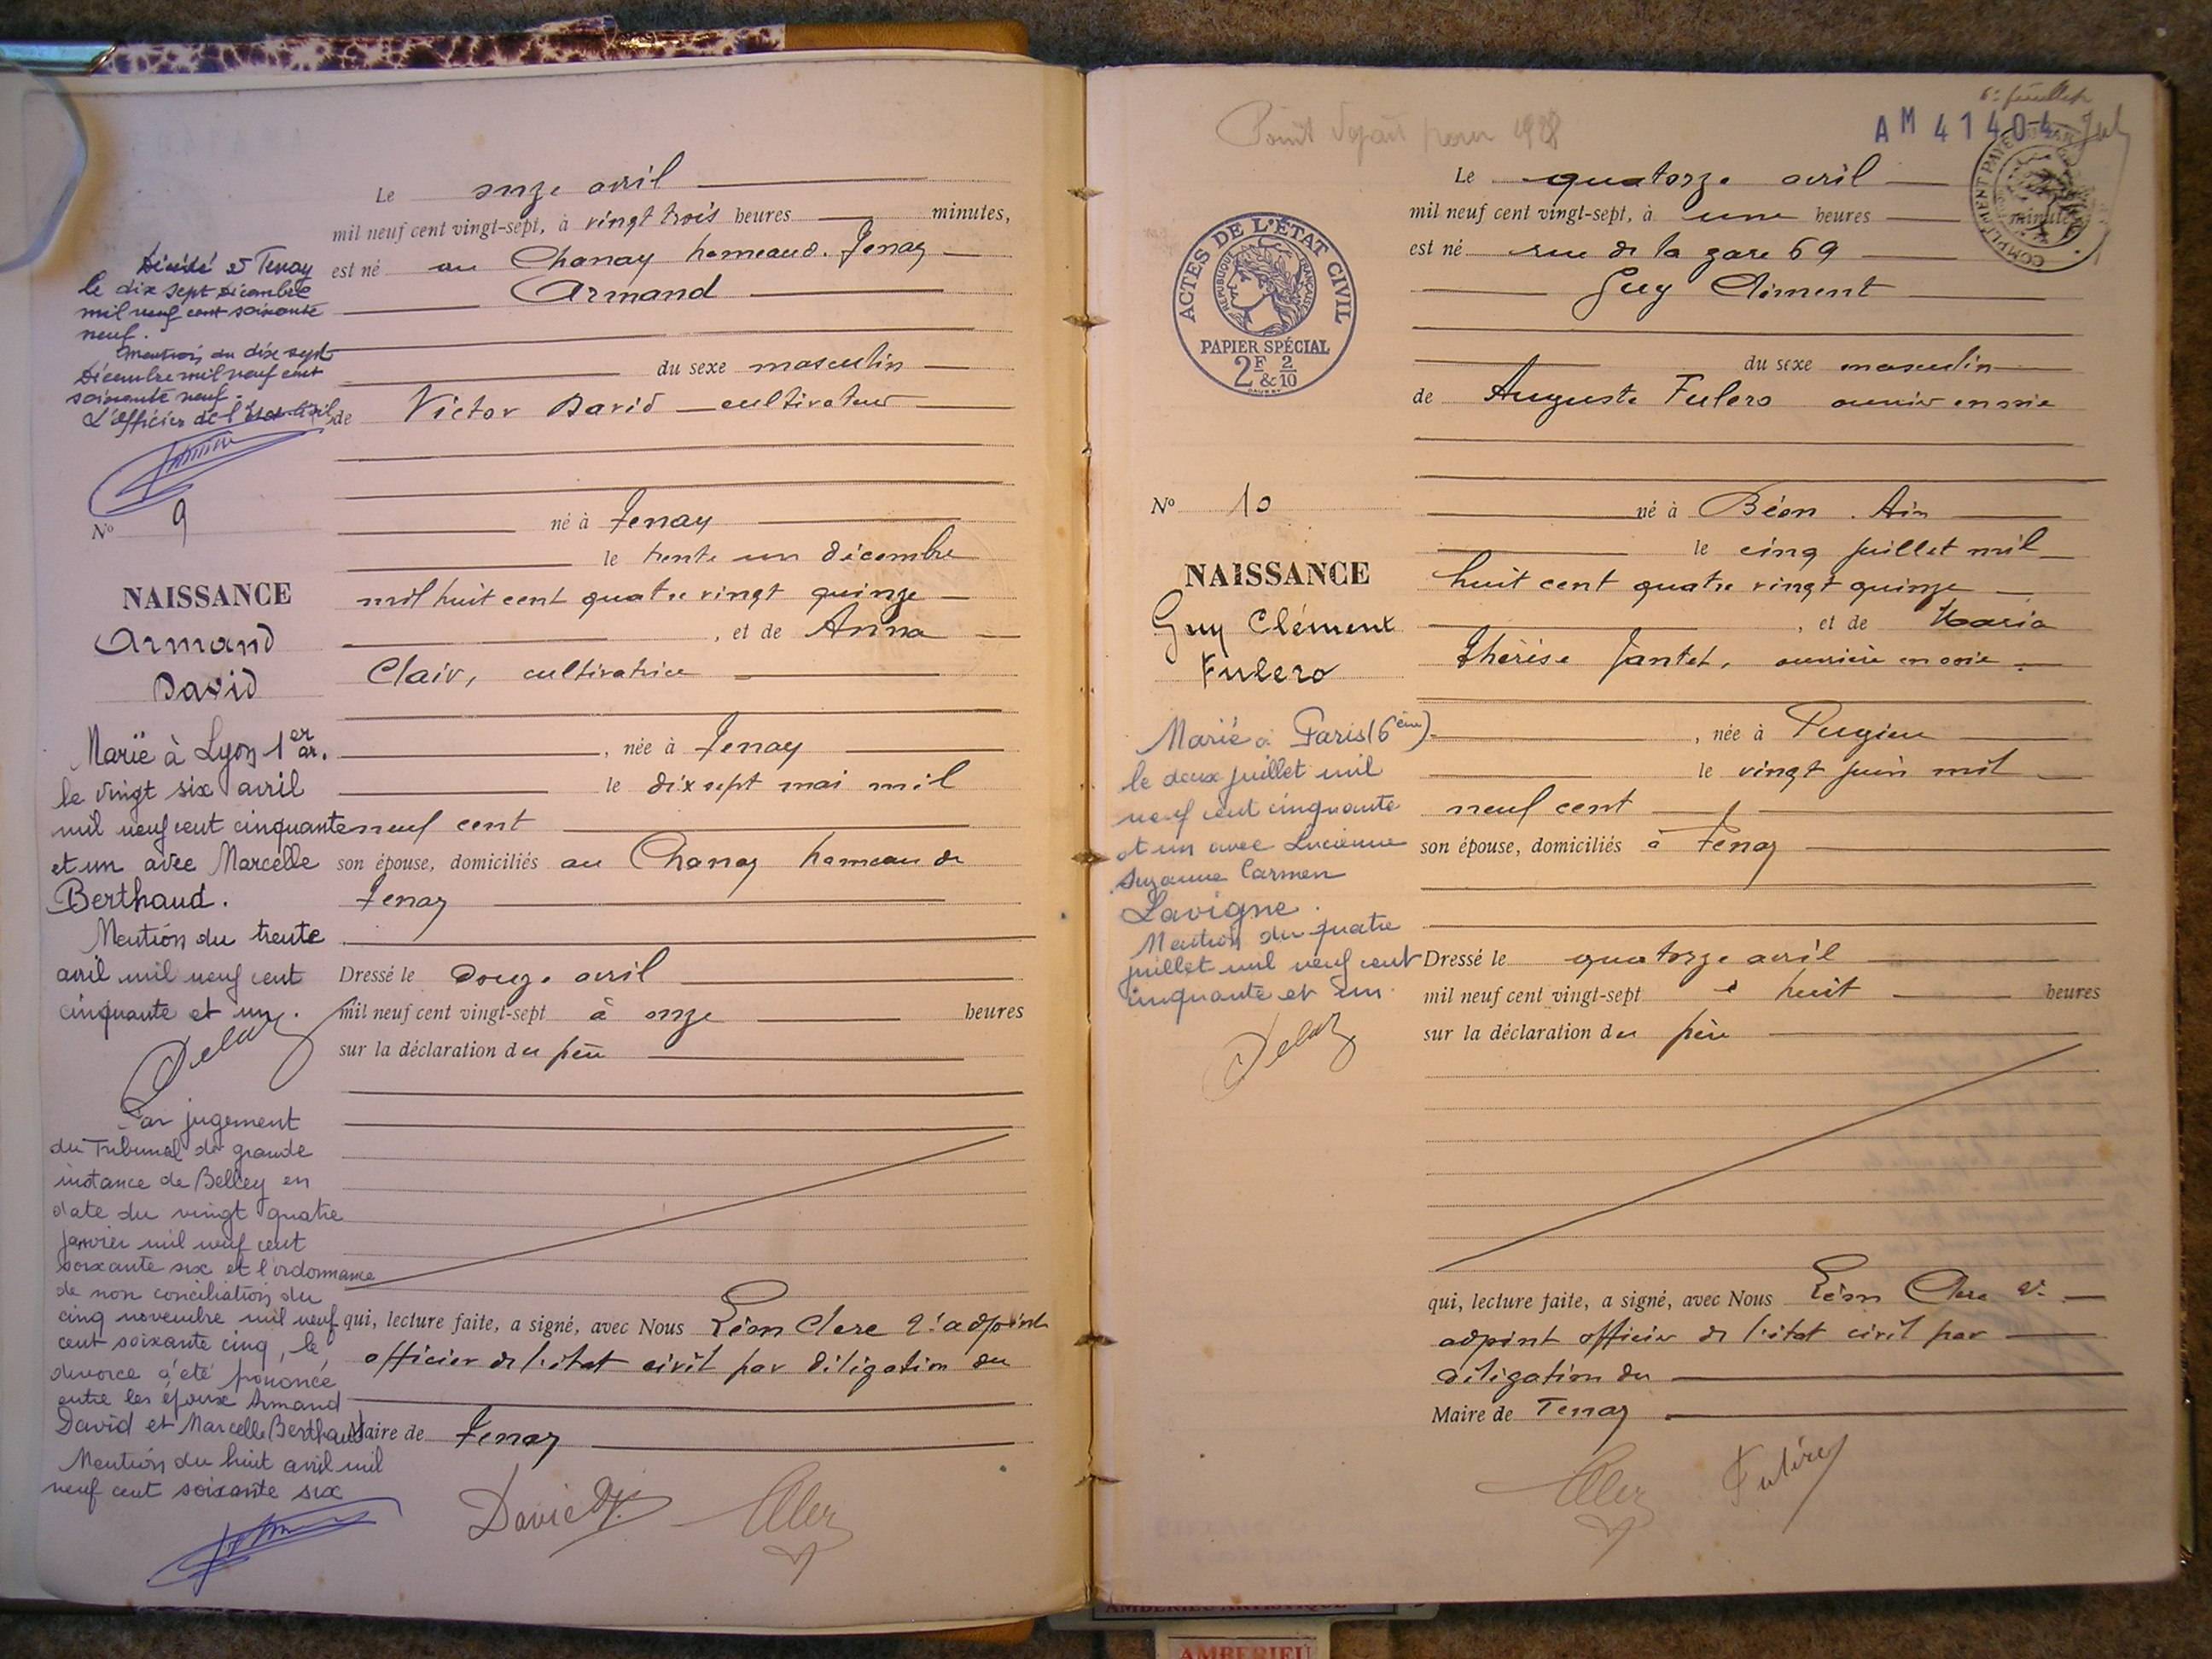 Décédé à Tenay
le dix sept décembre
mil neuf cent soixante
neuf.
Mention du dix sept
Décembre mil neuf cent
soixante neuf.
L'officier de l'Etat-Civil
No 9
NAISSANCE
Armand
David
Marié à Lyon 1er ar.
le vingt six avril
mil neuf cent cinquante
et un avec Marcelle
Berthaud.
Mention du trente
avril mil neuf cent
cinquante et un.
Delaz
Par jugement
du Tribunal de grande
instance de Belley en
date du vingt quatre
janvier mil neuf cent
soixante six et l'ordonnance
de non conciliation du
cinq novembre mil neuf
cent soixante cinq, le
divorce a été prononcé
entre les époux Armand
David et Marcelle Berthaud
Mention du huit avril mil
neuf cent soixante six
Le onze avril
mil neuf cent vingt-sept, à vingt trois heures minutes,
est né au Chanay hameau d. Tenay
Armand
du sexe masculin
de Victor David cultivateur
né à Tenay
le trente un décembre
mil huit cent quatre vingt quinze
, et de Anna
Clair, cultivatrice
, née à Tenay
le dix sept mai mil
neuf cent
son épouse, domiciliés au Chanay hameau de
Tenay
Dressé le douze avril
mil neuf cent vingt-sept à onze heures
sur la déclaration du père
qui, lecture faite, a signé, avec Nous Léon Clerc 2e adjoint
officier de l'état civil par déligation du
Maire de Tenay
David V.
Point départ pour 1928
6e feuillet
AM 41404
COMPLÉMENT PAYÉ
ACTES DE L'ÉTAT CIVIL
RÉPUBLIQUE FRANÇAISE
PAPIER SPÉCIAL
2F & 2/10
No 10
NAISSANCE
Guy Clément
Fulero
Marié à Paris (6ème)
le deux juillet mil
neuf cent cinquante
et un avec Lucienne
Suzanne Carmen
Lavigne.
Mention du quatre
juillet mil neuf cent
cinquante et un.
Delaz
Le quatorze avril
mil neuf cent vingt-sept, à une heures minutes
est né rue de la gare 69
Guy Clément
du sexe masculin
de Auguste Fulero ouvrier en soie
né à Béon . Ain
le cinq juillet mil
huit cent quatre vingt quinze
, et de Maria
Thérèse Jantet, ouvrière en soie
, née à Pugieu
le vingt juin mil
neuf cent
son épouse, domiciliés à Tenay
Dressé le quatorze avril
mil neuf cent vingt-sept à huit heures
sur la déclaration du père
qui, lecture faite, a signé, avec Nous Léon Clerc 2e
adjoint officier de l'état civil par
déligation du
Maire de Tenay
Fuléro
AMBERIEU ARTISTIQUE
AMBERIEU